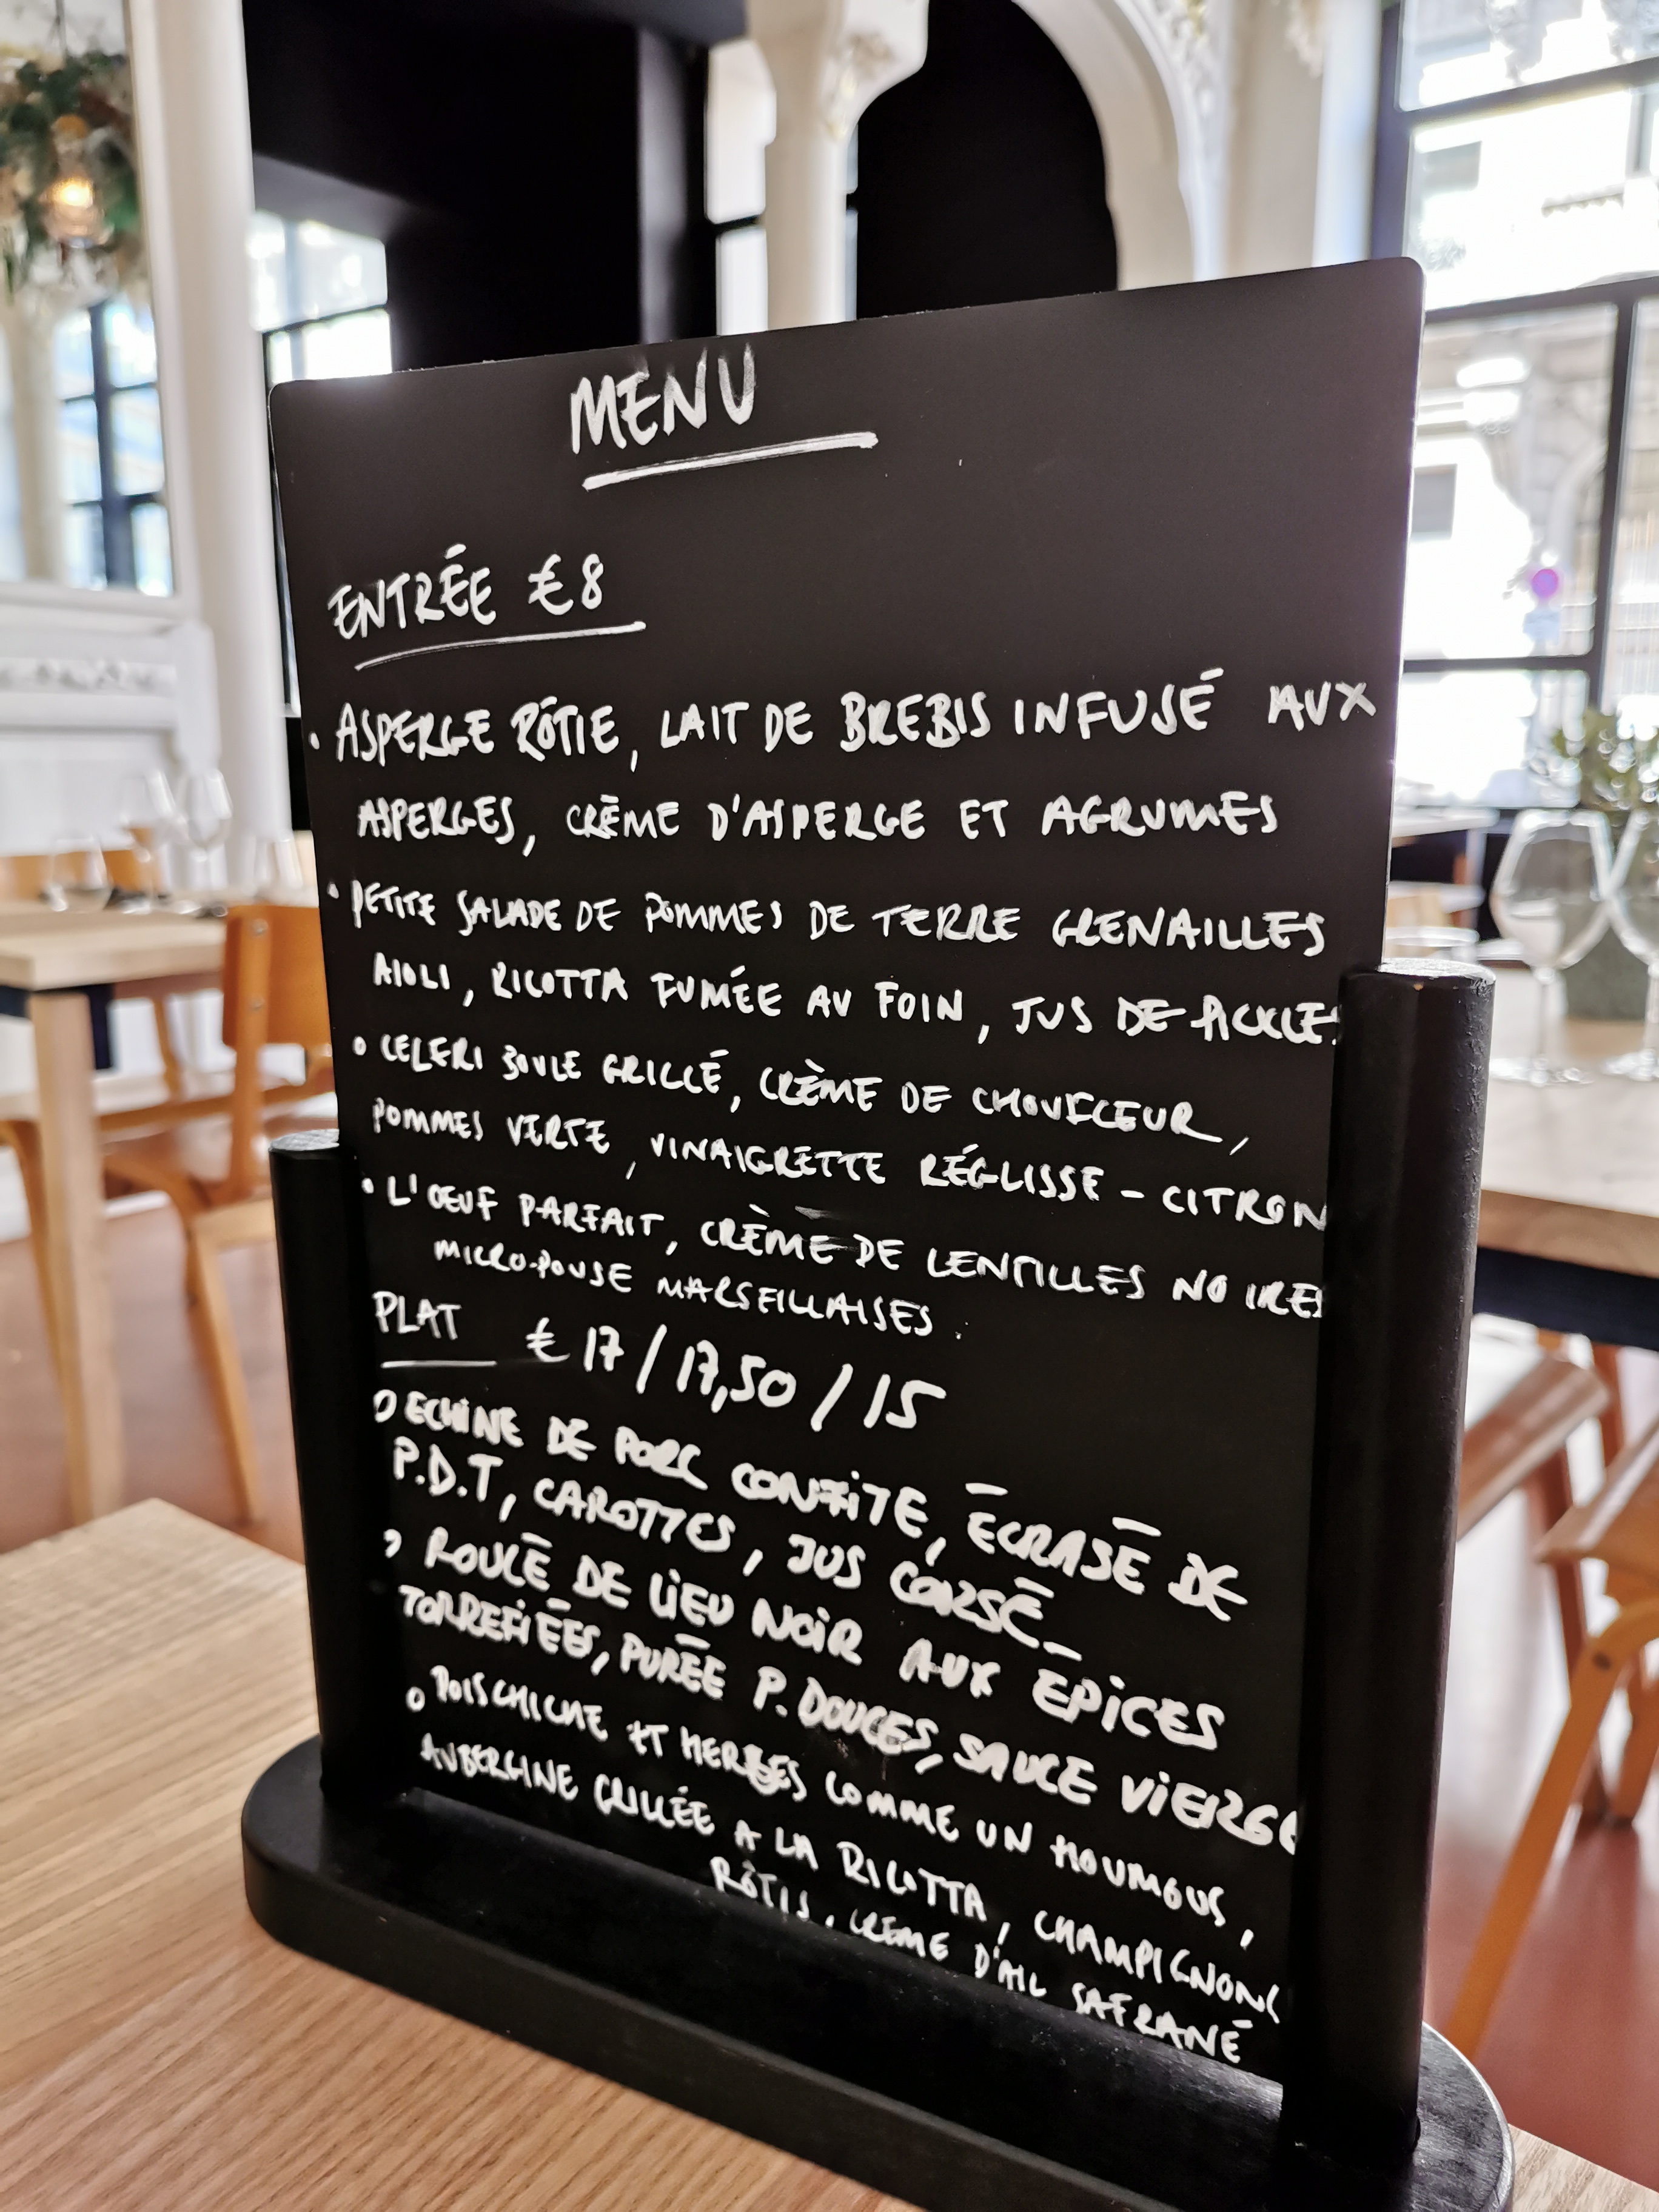 MENU
ENTRÉE €8
• ASPERGE RÔTIE, LAIT DE BREBIS INFUSÉ AUX
ASPERGES, CRÈME D'ASPERGE ET AGRUMES
• PETITE SALADE DE POMMES DE TERRE GRENAILLES
AIOLI, RICOTTA FUMÉE AU FOIN, JUS DE PICKLES
• CELERI BOULE GRILLÉ, CRÈME DE CHOUFLEUR,
POMMES VERTE, VINAIGRETTE RÉGLISSE - CITRON
• L'ŒUF PARFAIT, CRÈME DE LENTILLES NOIRES
MICRO-POUSE MARSEILLAISES.
PLAT € 17 / 17,50 / 15
O ECHINE DE PORC CONFITE, ÉCRASÉ DE
P.D.T, CAROTTES, JUS CORSÉ_
• ROULÉ DE LIEU NOIR AUX EPICES
TORREFIÉES, PURÉE P. DOUCES, SAUCE VIERGE
O POISCHICHE ET HERBES COMME UN HOUMOUS,
AUBERGINE GRILLÉE A LA RICOTTA, CHAMPIGNONS
RÔTIS, CRÈME D'AIL SAFRANÉ